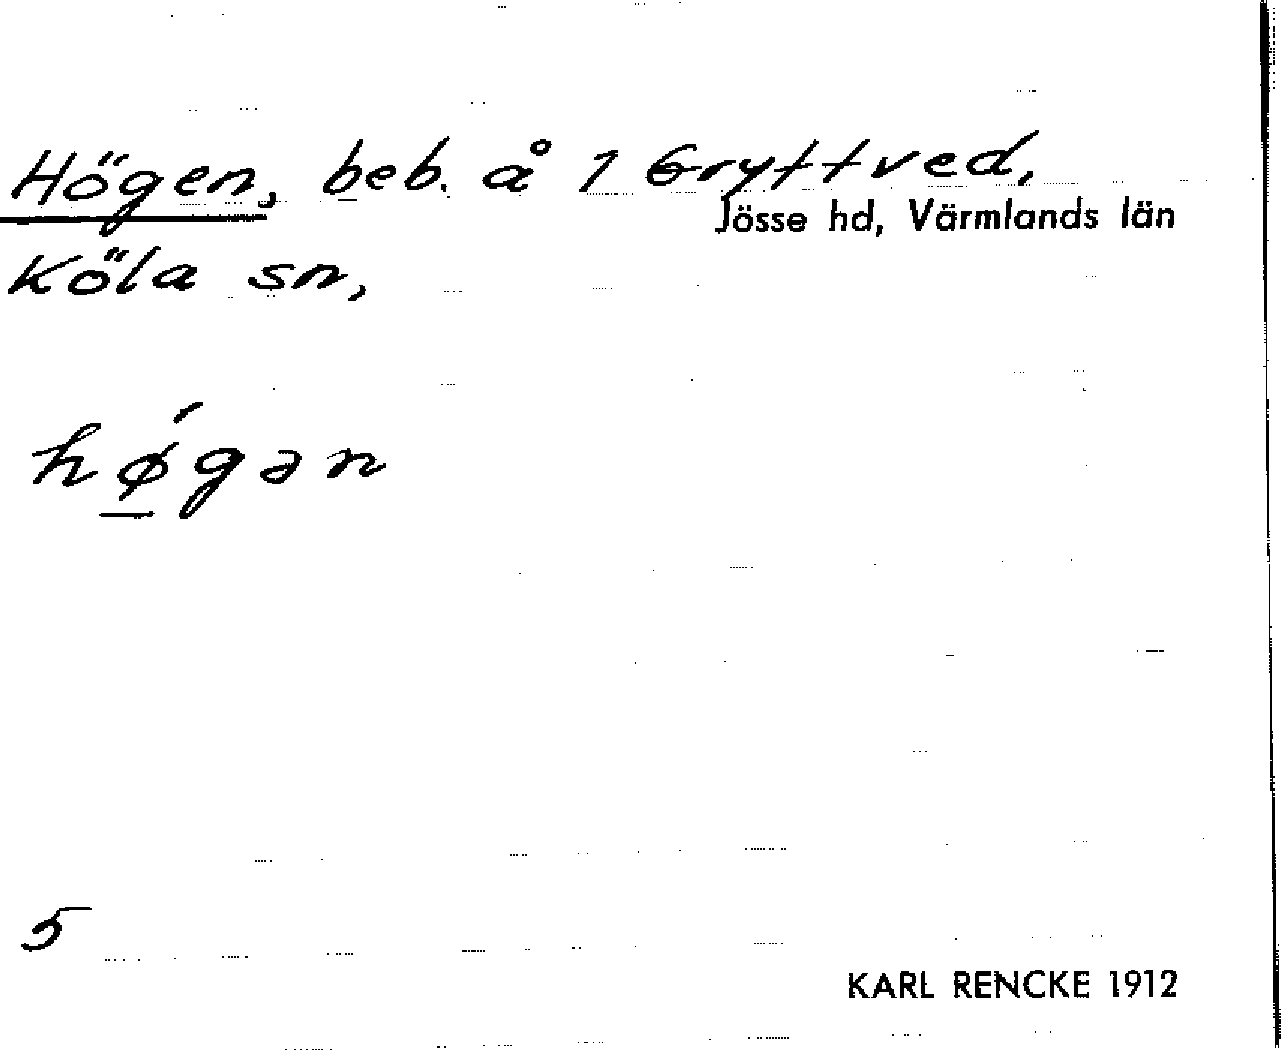 Högen, beb. å 1 Gryttved,
Jösse hd, Värmlands län
Köla sn,
hǿ̱gən
5
KARL RENCKE 1912